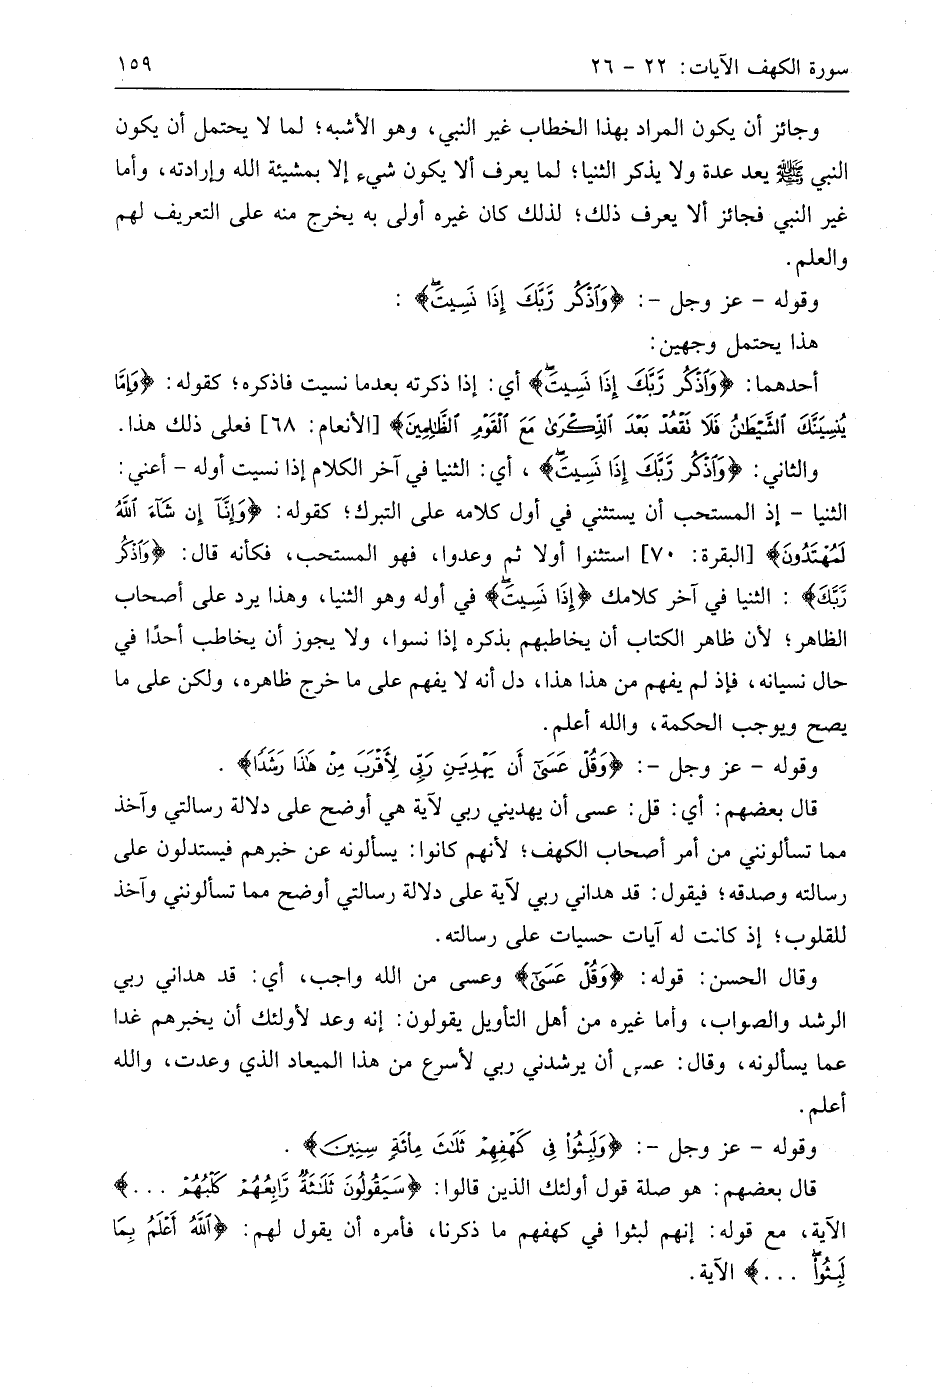 سورة الكهف الآيات: ٢٢ - ٢٦ ١٥٩
وجائز أن يكون المراد بهذا الخطاب غير النبي، وهو الأشبه؛ لما لا يحتمل أن يكون
النبي ﷺ يعد عدة ولا يذكر الثنيا؛ لما يعرف ألا يكون شيء إلا بمشيئة الله وإرادته، وأما
غير النبي فجائز ألا يعرف ذلك؛ لذلك كان غيره أولى به يخرج منه على التعريف لهم
والعلم.
وقوله - عز وجل -: ﴿وَٱذْكُر رَّبَّكَ إِذَا نَسِيتَۖ﴾ :
هذا يحتمل وجهين:
أحدهما: ﴿وَٱذْكُر رَّبَّكَ إِذَا نَسِيتَۖ﴾ أي: إذا ذكرته بعدما نسيت فاذكره؛ كقوله: ﴿وَإِمَّا
يُنسِيَنَّكَ ٱلشَّيْطَٰنُ فَلَا نَقْعُدْ بَعْدَ ٱلذِّكْرَىٰ مَعَ ٱلْقَوْمِ ٱلظَّٰلِمِينَ﴾ [الأنعام: ٦٨] فعلى ذلك هذا.
والثاني: ﴿وَٱذْكُر رَّبَّكَ إِذَا نَسِيتَۖ﴾ ، أي: الثنيا في آخر الكلام إذا نسيت أوله - أعني:
الثنيا - إذ المستحب أن يستثني في أول كلامه على التبرك؛ كقوله: ﴿وَإِنَّآ إِن شَآءَ ٱللَّهُ
لَمُهْتَدُونَ﴾ [البقرة: ٧٠] استثنوا أولا ثم وعدوا، فهو المستحب، فكأنه قال: ﴿وَٱذْكُر
رَّبَّكَ﴾ : الثنيا في آخر كلامك ﴿إِذَا نَسِيتَۖ﴾ في أوله وهو الثنيا، وهذا يرد على أصحاب
الظاهر؛ لأن ظاهر الكتاب أن يخاطبهم بذكره إذا نسوا، ولا يجوز أن يخاطب أحدًا في
حال نسيانه، فإذ لم يفهم من هذا هذا، دل أنه لا يفهم على ما خرج ظاهره، ولكن على ما
يصح ويوجب الحكمة، والله أعلم.
وقوله - عز وجل -: ﴿وَقُلْ عَسَىٰٓ أَن يَهْدِيَنِ رَبِّى لِأَقْرَبَ مِنْ هَٰذَا رَشَدًا﴾ .
قال بعضهم: أي: قل: عسى أن يهديني ربي لآية هي أوضح على دلالة رسالتي وآخذ
مما تسألونني من أمر أصحاب الكهف؛ لأنهم كانوا: يسألونه عن خبرهم فيستدلون على
رسالته وصدقه؛ فيقول: قد هداني ربي لآية على دلالة رسالتي أوضح مما تسألونني وآخذ
للقلوب؛ إذ كانت له آيات حسيات على رسالته.
وقال الحسن: قوله: ﴿وَقُلْ عَسَىٰٓ﴾ وعسى من الله واجب، أي: قد هداني ربي
الرشد والصواب، وأما غيره من أهل التأويل يقولون: إنه وعد لأولئك أن يخبرهم غدا
عما يسألونه، وقال: عسى أن يرشدني ربي لأسرع من هذا الميعاد الذي وعدت، والله
أعلم.
وقوله - عز وجل -: ﴿وَلَبِثُوا۟ فِى كَهْفِهِمْ ثَلَٰثَ مِا۟ئَةٍ سِنِينَ﴾ .
قال بعضهم: هو صلة قول أولئك الذين قالوا: ﴿سَيَقُولُونَ ثَلَٰثَةٌ رَّابِعُهُمْ كَلْبُهُمْ ...﴾
الآية، مع قوله: إنهم لبثوا في كهفهم ما ذكرنا، فأمره أن يقول لهم: ﴿ٱللَّهُ أَعْلَمُ بِمَا
لَبِثُوا۟ۖ ...﴾ الآية.